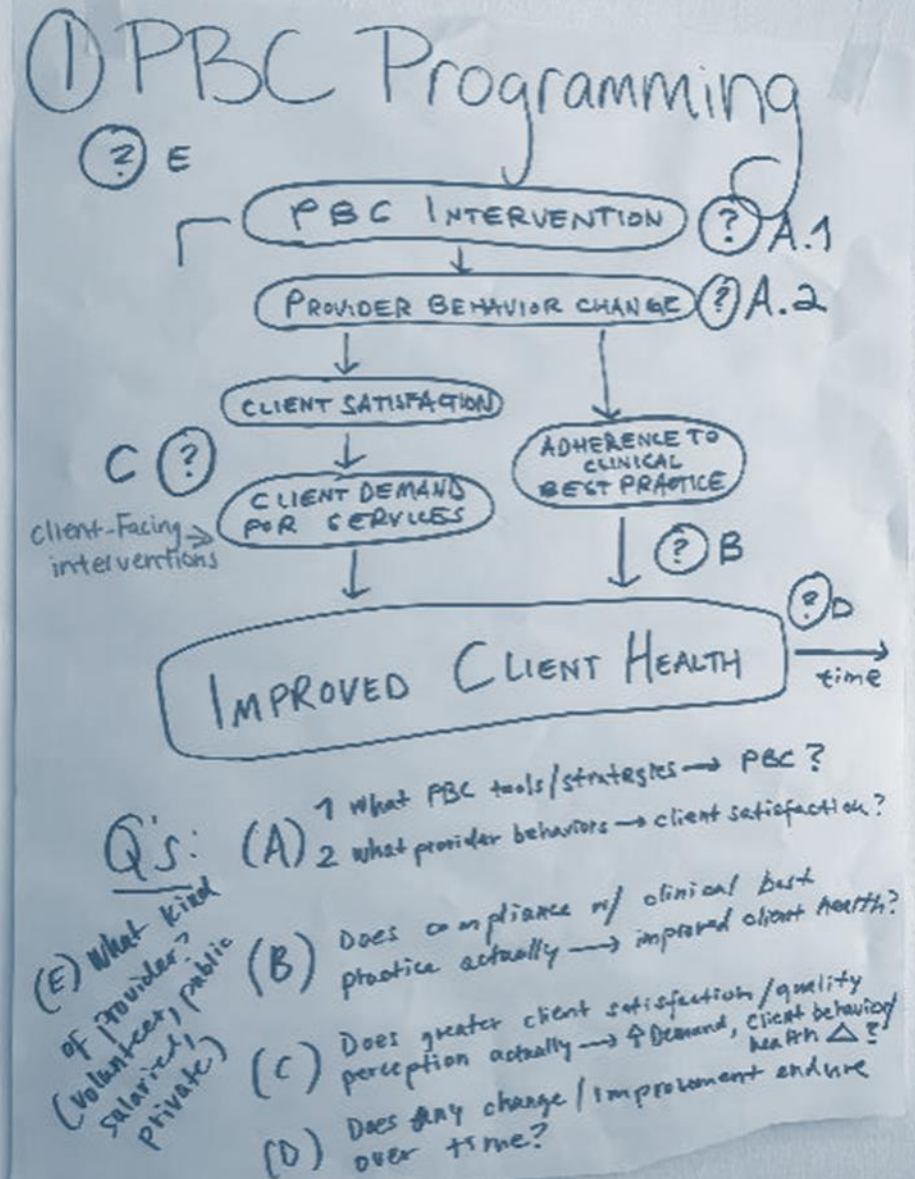 ① PBC Programming
? E
PBC INTERVENTION
? A.1
PROVIDER BEHAVIOR CHANGE
? A.2
CLIENT SATISFACTION
ADHERENCE TO
CLINICAL
BEST PRACTICE
C ?
CLIENT DEMAND
FOR SERVICES
client-Facing
interventions
? B
? D
IMPROVED CLIENT HEALTH
time
Q's:
(A) 1 What PBC tools/strategies → PBC?
2 what provider behaviors → client satisfaction?
(B) Does compliance w/ clinical best
practice actually → improved client health?
(C) Does greater client satisfaction/quality
perception actually → ↑ Demand, client behavior/
health △?
(D) Does any change/improvement endure
over time?
(E) What kind
of provider?
(volunteer, public
salaried,
private)